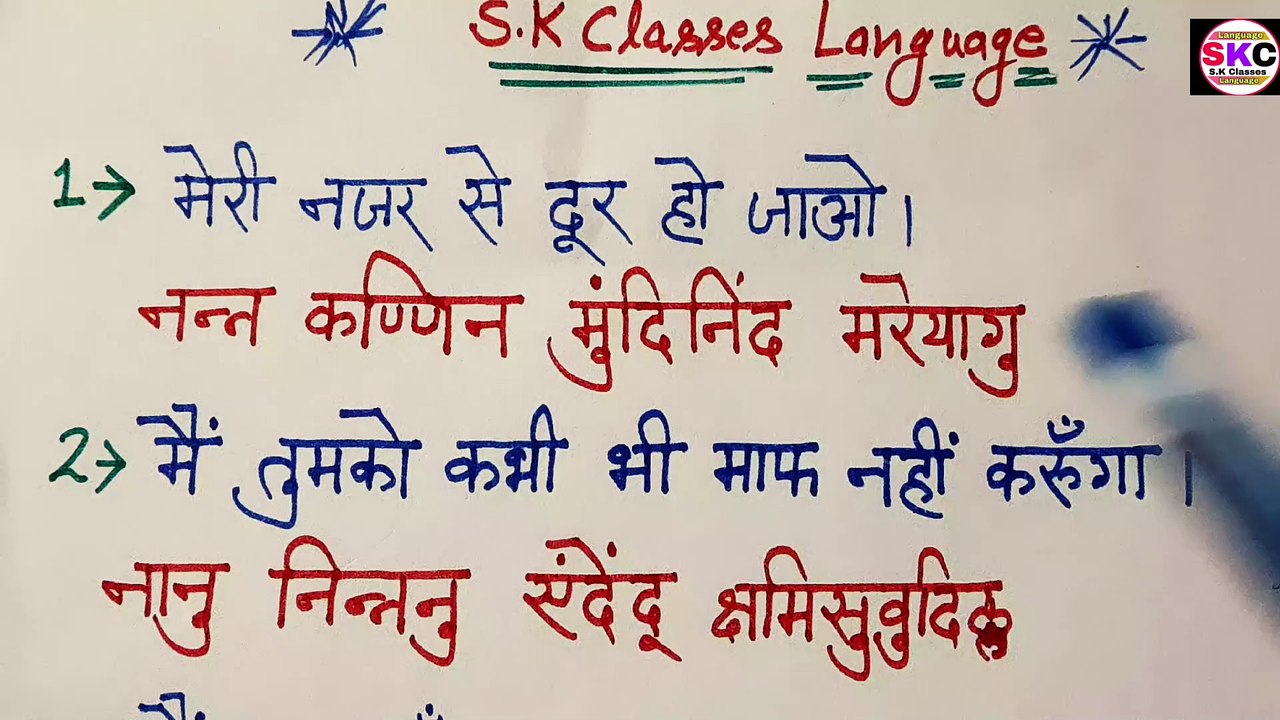 S.K Classes Language
Language
SKC
S.K Classes
Language
1→ मेरी नजर से दूर हो जाओ।
नन्न कण्णिन मुंदिनिंद मरेयागु
2→ मैं तुमको कभी भी माफ नहीं करूँगा।
नानु निन्ननु एंदेंदू